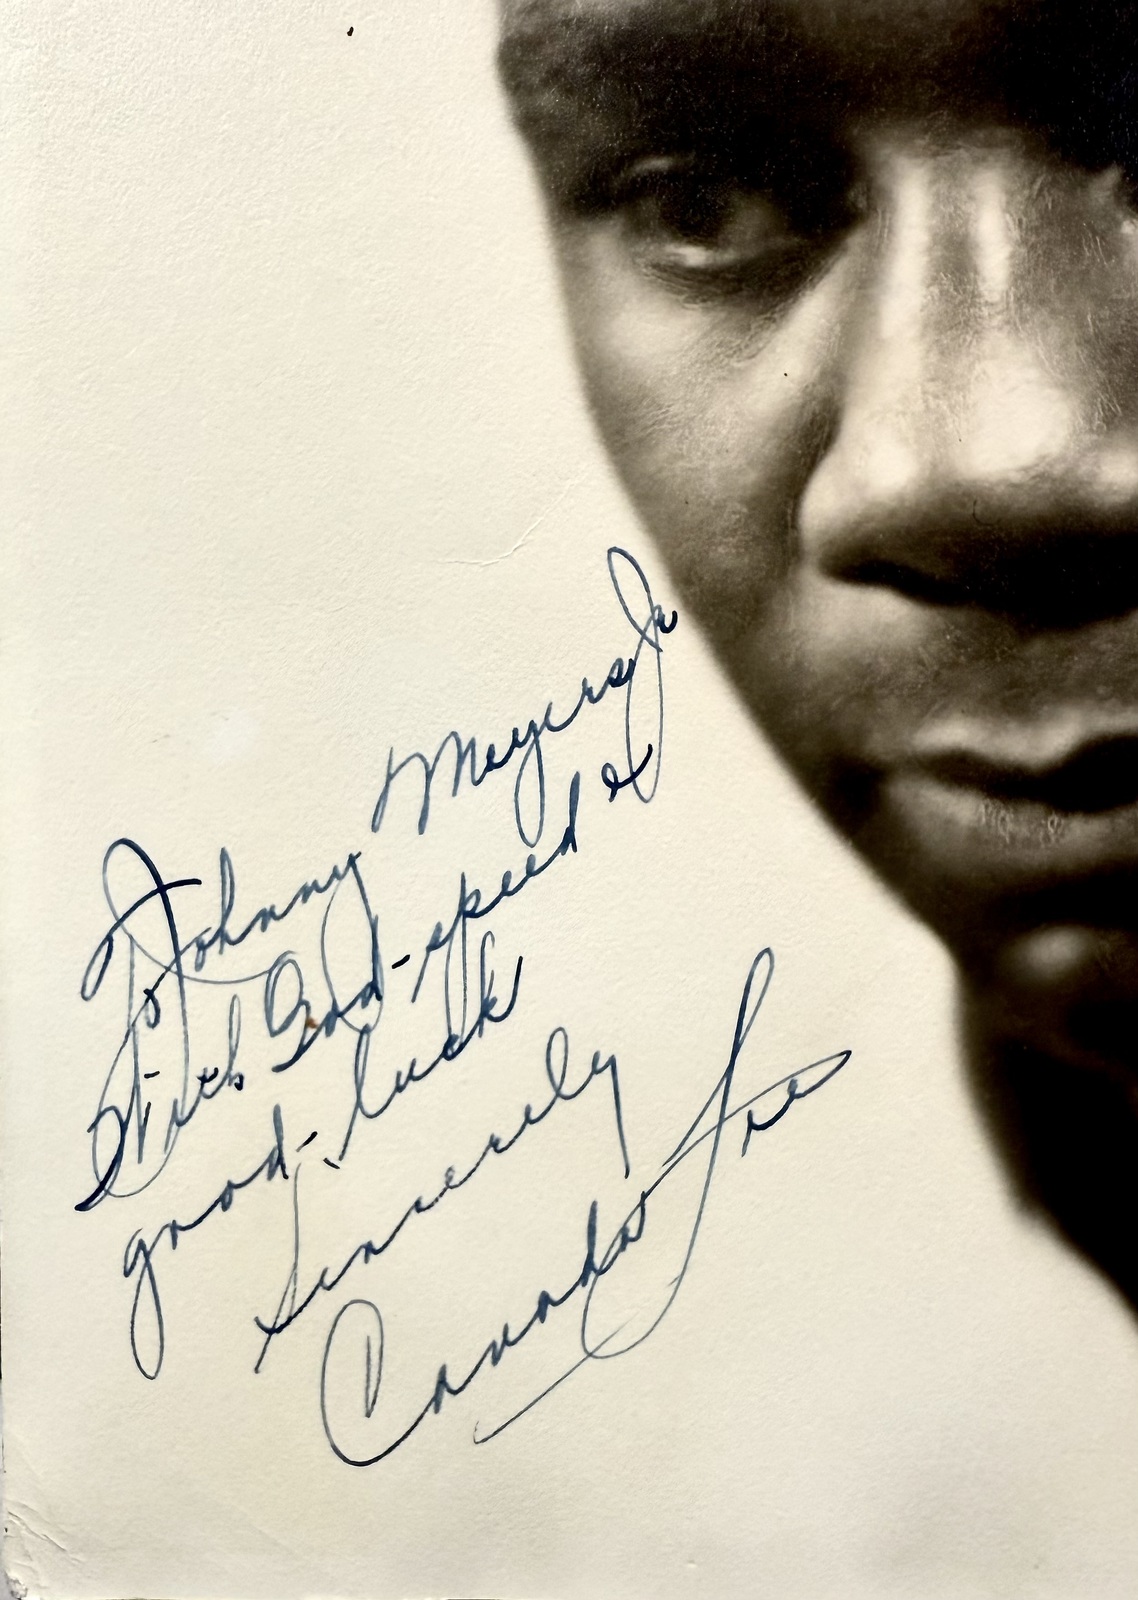 To Johnny Meyers Jr
With God-speed &
good-luck
Sincerely
Canada Lee